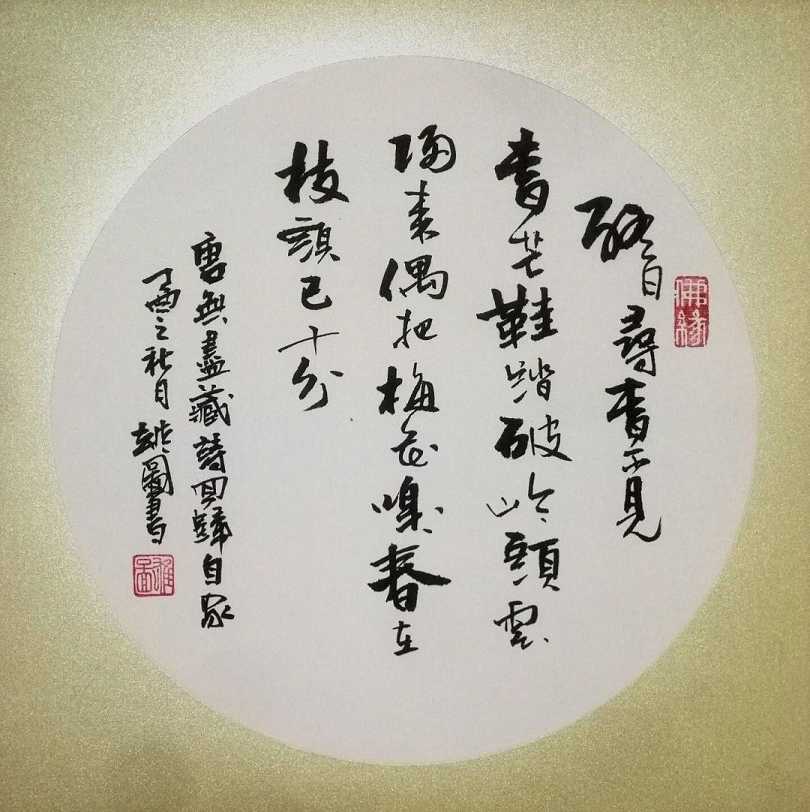 終日尋春不見
春芒鞋踏破岭頭雲
歸來偶把梅花嗅春在
枝頭已十分
唐無盡藏詩回歸自家
丁酉之秋月雄圖書
佛緣